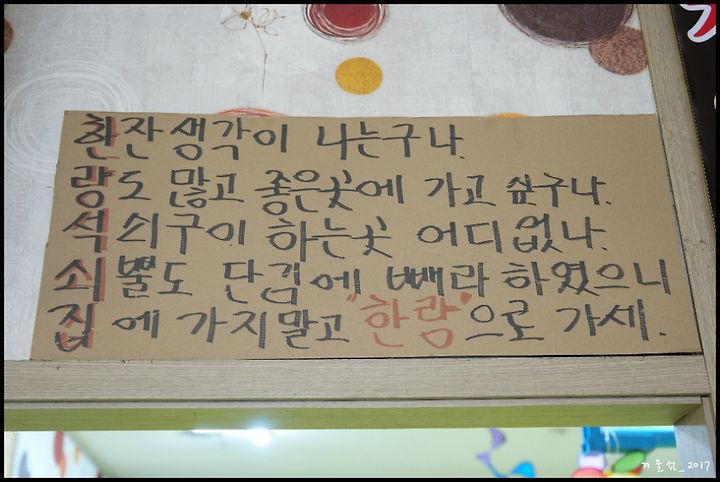 한잔 생각이 나는구나.
량도 많고 좋은곳에 가고 싶구나.
석쇠구이 하는곳 어디없나.
쇠뿔도 단김에 빼라 하였으니
집에 가지말고 "한량"으로 가세.
겨울섬_2017